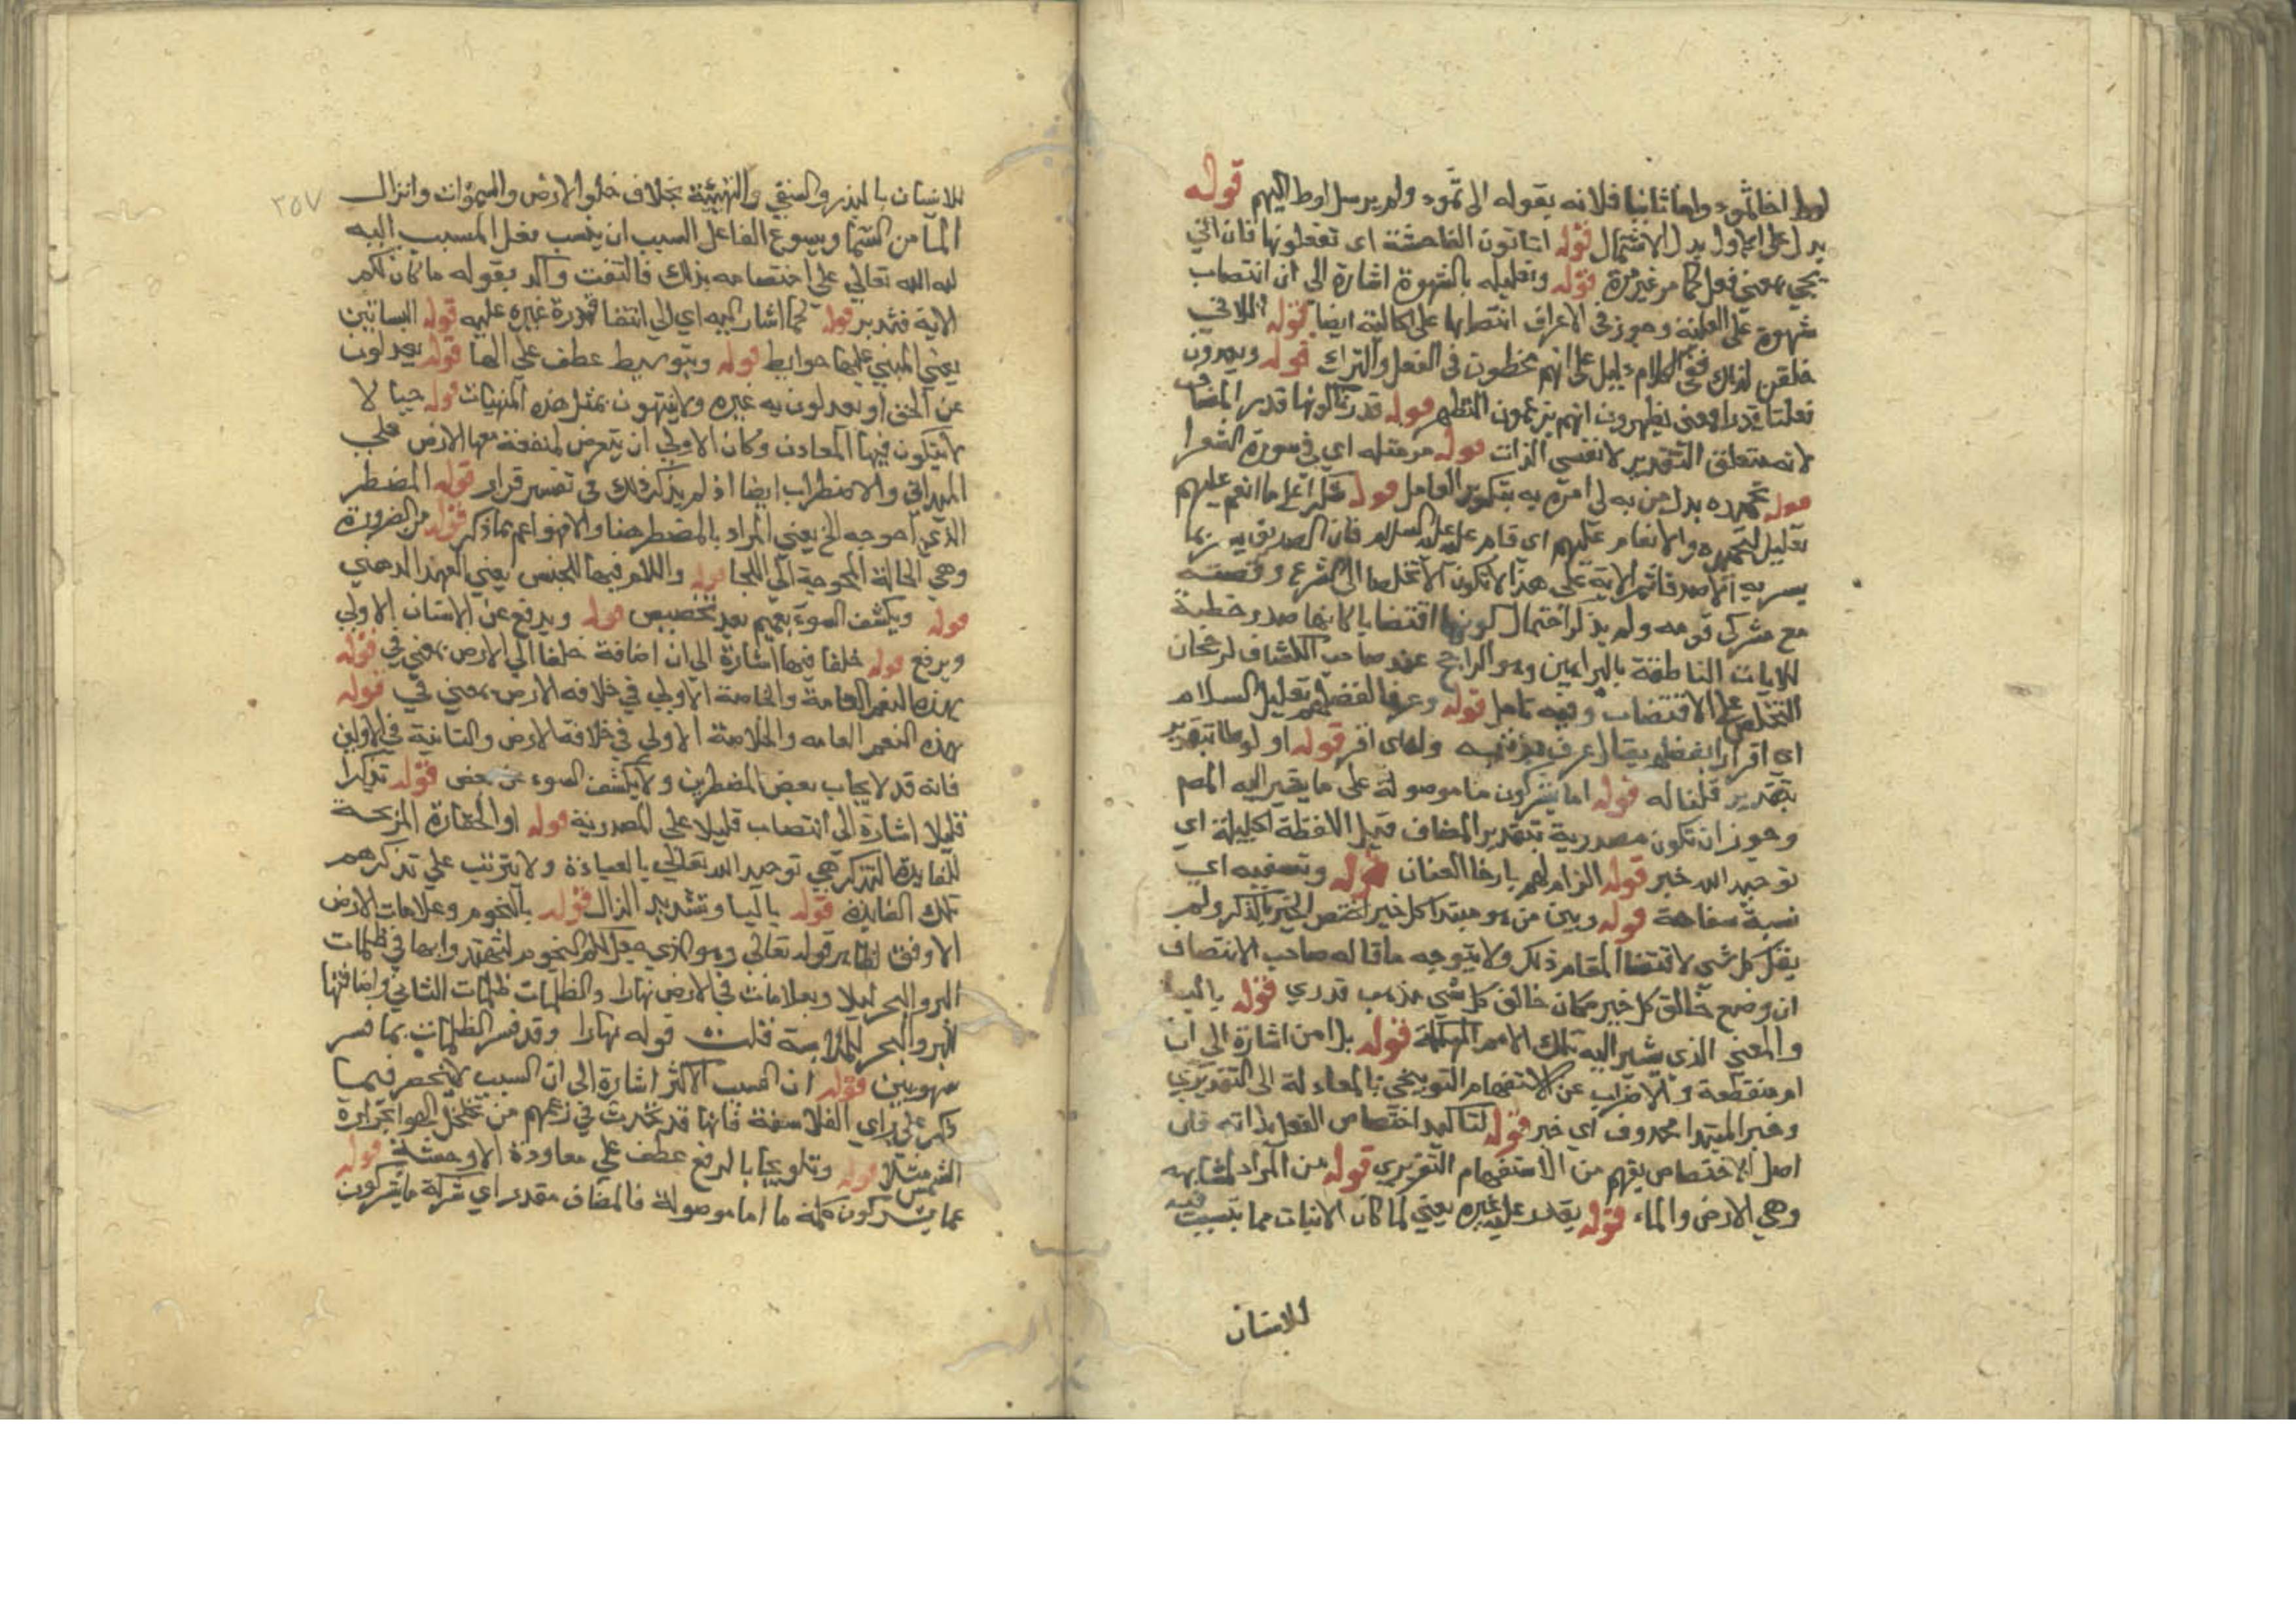 لوط اخا ثمود واما ثانيا فلانه يقوله الى ثمود ولم يرسل لوط اليهم قوله
بدل على الاول بدل الاشتمال قوله اتاتون الفاحشة اى تفعلونها فان اتي
يجي بمعنى فعل كما مر غير مرة قوله وتعليله بالشهوة اشارة الى ان انتصاب
شهوة على العلية وجوز في الاعراف انتصابها على الحالية ايضا قوله اللاتي
خلقن لذلك ففي الكلام دليل على انهم مخطون في الفعل والترك قوله ويعدون
فعلنا قذرا ومعنى يطهرون انهم يتزعمون التطهر قوله قدرنا كونها قدر المضاف
لانه متعلق التقدير لا نفس الذات قوله مر مثله اي في سورة الشعرا
قوله تحميده بدل من به لي امره به بتكرير العامل قوله شكرا على ما انعم عليهم
تعليل لتحميده والانعام عليهم اى قام عليه عليه السلام فان الصديق
مع مشركى قومه ولم يذكر احتمال كونها اقتضابا كانها صدر خطبة
للايات الناطقة بالبراهين وهو الراجح عند صاحب الكشاف لرجحان
التخلص على الاقتضاب وفيه تامل قوله وعرفا لفضلهم تعليل السلام
اى اقرارا بفضلهم يقال عرف بذنبه وله اى اقر قوله او لوطا بتقدير
بتقدير قلنا له قوله اما يشركون ما موصولة على ما يشير اليه المص
وجوز ان تكون مصدرية بتقدير المضاف قبل اللفظة الجليلة اي
توحيد الله خير قوله الزام لهم بارخا العنان قوله وتسفيه اي
نسبة سفاهة قوله وبين من هو مبتدا كل خير اختص الخير بالذكر ولم
يقل كل شي لاقتضا المقام ذلك ولا يتوجه ما قاله صاحب الانتصاف
ان وضع خالق كل خير مكان خالق كل شي مذهب قدري قوله باليا
والمعنى الذي يشير اليه تلك الامم المهلكة قوله بل امن اشارة الى ان
ام منقطعة والاضراب عن الاستفهام التوبيخي بالمعادلة الى التقريري
وخبر المبتدا محذوف اي خير قوله لتاكيد اختصاص الفعل بذاته فان
اصل الاختصاص يفهم من الاستفهام التقريري قوله من المواد المتشابهه
وهي الارض والماء قوله يقدر عليه غيره يعني لما كان الانبات مما يتسبب فيه
للانسان
٣٥٧
للانسان بالبذر والسقي والتهيئة بخلاف خلق الارض والسموات وانزال
الما من السما ويسوغ الفاعل السبب ان ينسب فعل المسبب اليه
نبه الله تعالى على اختصاصه بذلك فالتفت واكد بقوله ما كان لكم
الاية فتدبر قوله كما اشار اليه اي الي انتفا قدرة غيره عليه قوله البساتين
يعني المبني عليها حوايط قوله وبتوسيط عطف على الها قوله يعدلون
عن الحق او يعدلون به غيره ولا ينتهون بمثل هذه المنهيات قوله حيا لا
لا يتكون فيها المعادن وكان الاولى ان يتعرض لمنفعة منعها الارض على
الميدانى والاضطراب ايضا اذ لم يذكر ذلك في تفسير قرار قوله المضطر
الذي احوجه الخ يعني المراد بالمضطر هنا والافهو اعم مما ذكر قوله من الضرورة
وهي الحالة المحوجة الي اللجا قوله واللام فيها للجنس يعني العهد الذهني
قوله ويكشف السوء تعميم بعد تخصيص قوله ويدفع عن الانسان الاولى
ويرفع قوله خلفا فيها اشارة الى ان اضافة خلفا الي الارض بمعنى في قوله
بهذه النعم العامة والخاصة الاولي في خلافه الارض بمعني في قوله
بهذه النعم العامه والخاصة الاولي في خلافة الارض والثانية في الاولين
فانه قد لا يجاب بعض المضطرين ولا يكشف السوء عن بعض قوله تذكرا
قليلا اشارة الى انتصاب قليلا على المصدرية قوله او الحقارة المزيحة
للفايدة التذكر هي توحيد الله تعالى بالعبادة ولا يترتب على تذكرهم
تلك الفايدة قوله باليا وتشديد الذال قوله بالنجوم وعلامات الارض
الاوفق لظاهر قوله تعالى وهو الذي جعل لكم النجوم لتهتدوا بها في ظلمات
البر والبحر ليلا وبعلامات في الارض نهارا والظلمات ظلمات الليالي واضافتها
للبر والبحر للملابسة قلت قوله نهارا وقد فسر الظلمات بما فسر
سهو بين قوله ان السبب الاكثر اشارة الى ان السبب لا ينحصر فيما
ذكر على راي الفلاسفة فانها قد تحدث في زعمهم من تخلخل الهوا بحرارة
الشمس مثلا قوله وتلويحا بالرفع عطف على معاودة الاوحشة قوله
عما يشركون كلمة ما اما موصولة فالمضاف مقدر اي شركة ما يشركون